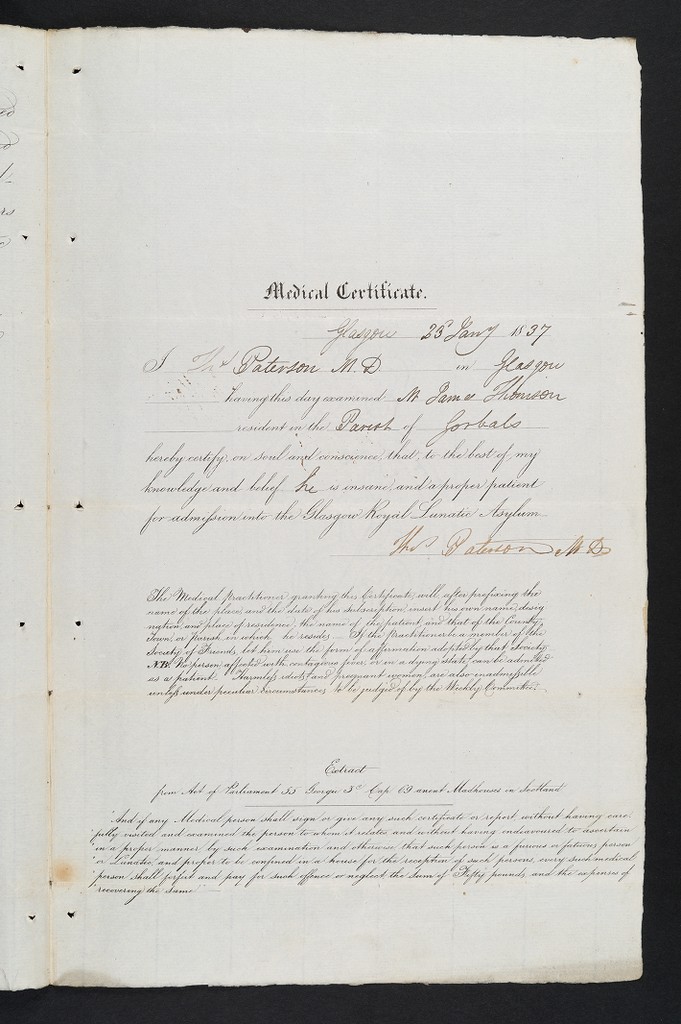 Medical Certificate.
Glasgow 23d Jany 1837
I Thos Paterson M.D. in Glasgow
having this day examined Mr James Thomson
resident in the Parish of Gorbals
hereby certify, on soul and conscience, that, to the best of my
knowledge and belief he is insane, and a proper patient
for admission into the Glasgow Royal Lunatic Asylum
Thos Paterson M.D.
The Medical Practitioner granting this Certificate, will, after prefixing the
name of the place, and the date of his subscription, insert his own name, desig
nation, and place of residence, the name of the patient, and that of the County,
Town, or Parish in which he resides. If the practitioner be a member of the
Society of Friends, let him use the form of affirmation adopted by that Society.
N.B. No person affected with contagious fever, or in a dying state, can be admitted
as a patient. Harmless idiots, and pregnant women, are also inadmissible
unless under peculiar circumstances, to be judged of by the Weekly Committee.
Extract
from Act of Parliament 55 George 3d Cap 69 anent Madhouses in Scotland
"And if any Medical person shall sign or give any such certificate or report, without having care
"fully visited and examined the person to whom it relates and without having endeavoured to ascertain
"in a proper manner by such examination and otherwise, that such person is a furious or fatuous person
"or Lunatic, and proper to be confined in a house for the reception of such persons, every such medical
"person shall forfeit and pay for such offence or neglect, the sum of Fifty pounds, and the expenses of
"recovering the same